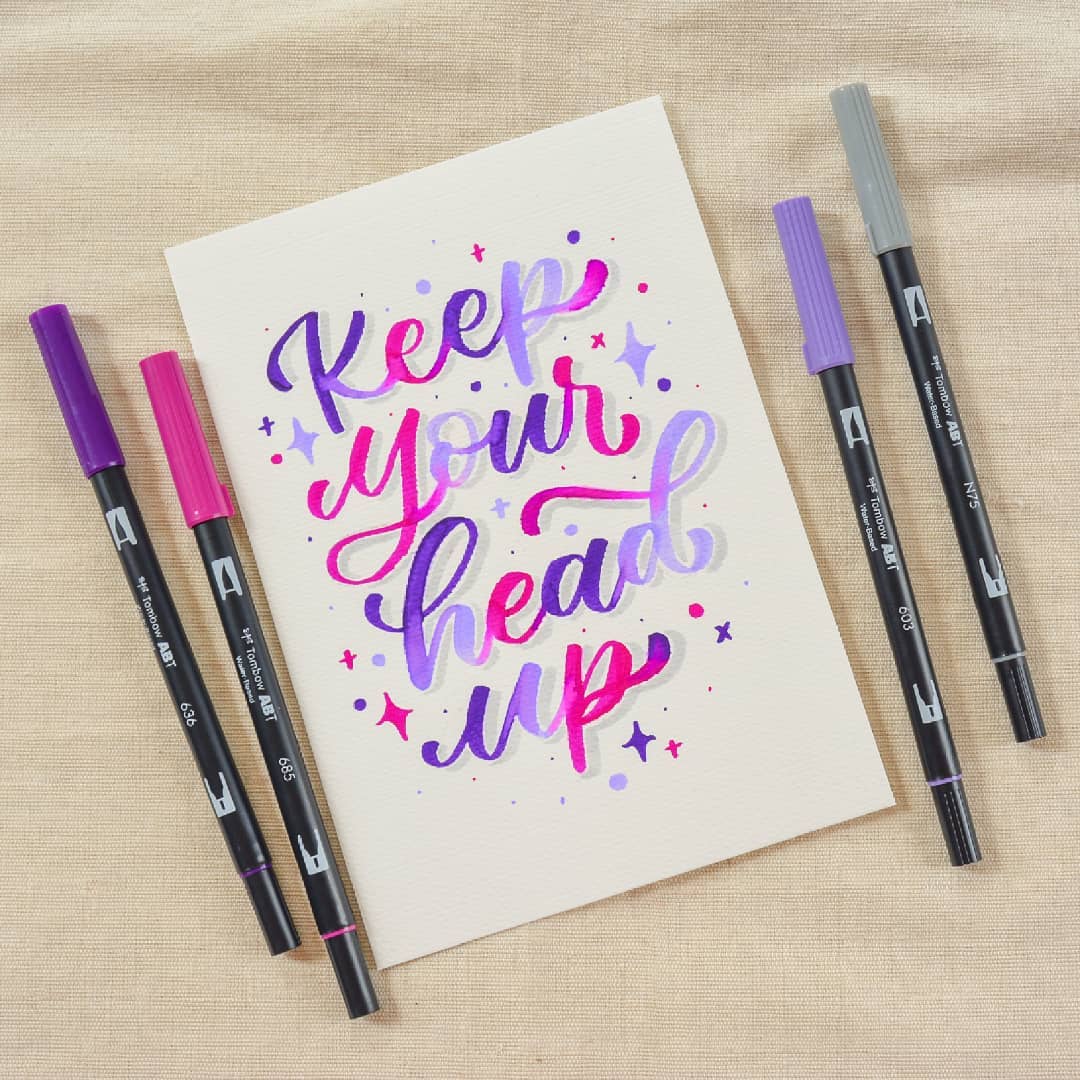 Keep
your
head
up
Tombow ABT
636
Tombow ABT
Water-Based
685
Tombow ABT
Water-Based
603
Tombow ABT
Water-Based
N75